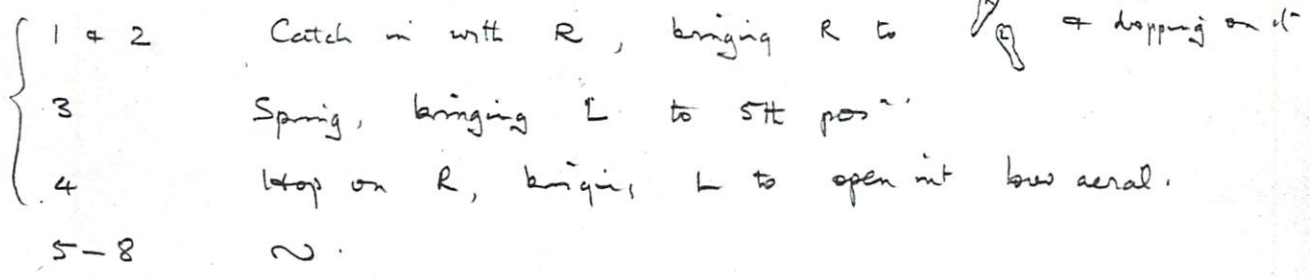 1 & 2 Catch in with R, bringing R to & dropping on it
3 Spring, bringing L to 5th pos'n.
4 Hop on R, bringing L to open int low aerial.
5-8 ~.